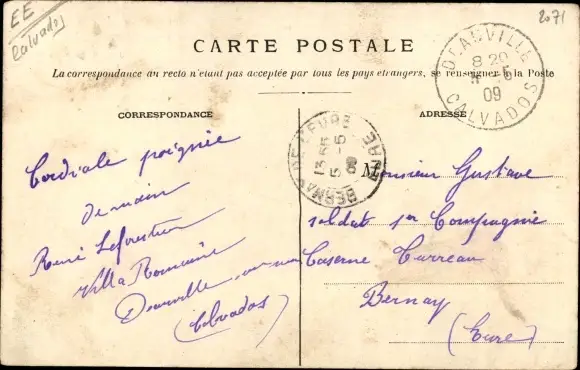 EE
Calvados
2071
CARTE POSTALE
La correspondance au recto n'étant pas acceptée par tous les pays étrangers, se renseigner à la Poste
DEAUVILLE
8 20
5 -5
09
CALVADOS
CORRESPONDANCE
ADRESSE
BERNAY
13 55
5 -5
09
EURE
Cordiale poignée
de main
René
Villa Romaine
Deauville
(Calvados)
Monsieur Gustave
soldat 1er Compagnie
Caserne Turreau
Bernay
(Eure)